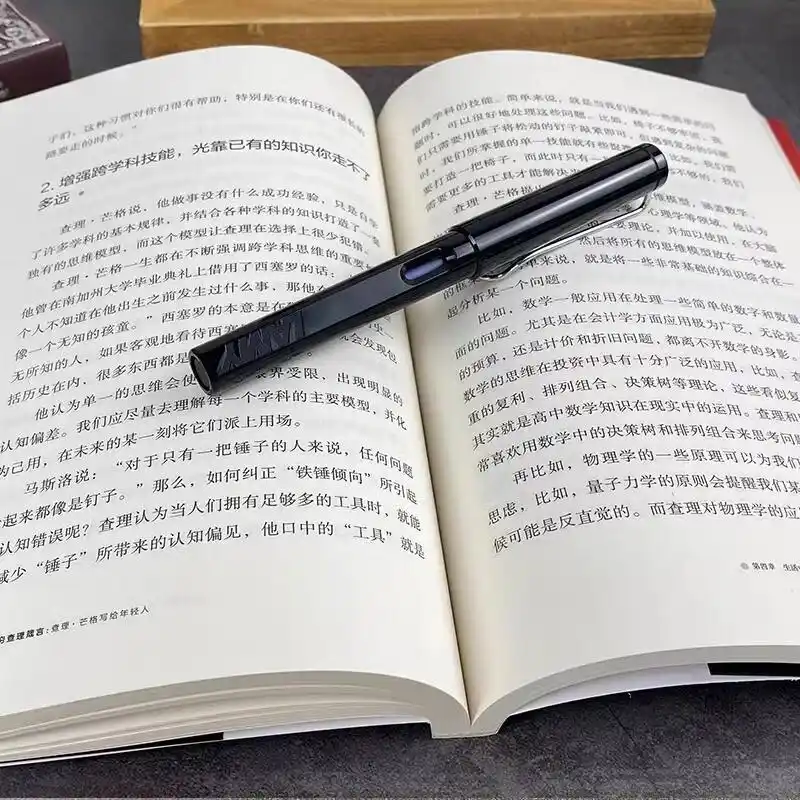 子们，这种习惯对你们很有帮助，特别是在你们还有很长的
路要走的时候。”
2. 增强跨学科技能，光靠已有的知识你走不了
多远。
查理·芒格说，他做事没有什么成功经验，只是自学
了许多学科的基本规律，并结合各种学科的知识打造了一套
独有的思维模型，而这个模型让查理在选择上很少犯错。
查理·芒格一生都在不断强调跨学科思维的重要
他曾在南加州大学毕业典礼上借用了西塞罗的话：
个人不知道在他出生之前发生过什么事，那他在
像一个无知的孩童。” 西塞罗的本意是在
无所知的人，如果客观地看待西塞
就会发现包
括历史在内，很多东西都是
他认为单一的思维会使
界受限，出现明显的
认知偏差。我们应尽量去理解每一个学科的主要模型，并化
为己用，在未来的某一刻将它们派上用场。
马斯洛说：“对于只有一把锤子的人来说，任何问题
起来都像是钉子。”那么，如何纠正“铁锤倾向”所引起
认知错误呢？查理认为当人们拥有足够多的工具时，就能
减少“锤子”所带来的认知偏见，他口中的“工具”就是
的查理箴言：查理·芒格写给年轻人
指跨学科的技能。简单来说，就是当我们遇到一些简单的问
题时，可以很好地处理这些问题。比如，椅子不够牢固，我
们只需要用锤子将松动的钉子敲紧即可，但遇到复杂的问题
时，我们所掌握的单一技能就有些
比如，我们需
要打造一把椅子，而此时只有一
不够的，我们
需要更多的工具才能解决
查理·芒格提
思维模型，涵盖数学、
心理学等领域。他认为
要理论，并加以使用，在大脑
然后将所有的思维模型放在一个整体
的框
单来说，就是将一些非常基础的知识综合在一
起分析某一个问题。
比如，数学一般应用在处理一些简单的数字和数量
面的问题。尤其是在会计学方面应用极为广泛，无论是
的预算，还是计价和折旧问题，都离不开数学的身影。
数学的思维在投资中具有十分广泛的应用，比如，查
重的复利、排列组合、决策树等理论，这些看似复
其实就是高中数学知识在现实中的运用。查理和
常喜欢用数学中的决策树和排列组合来思考问
再比如，物理学的一些原理可以为我们
思虑，比如，量子力学的原则会提醒我们某
候可能是反直觉的。而查理对物理学的应
第四章 生活中
LAMY